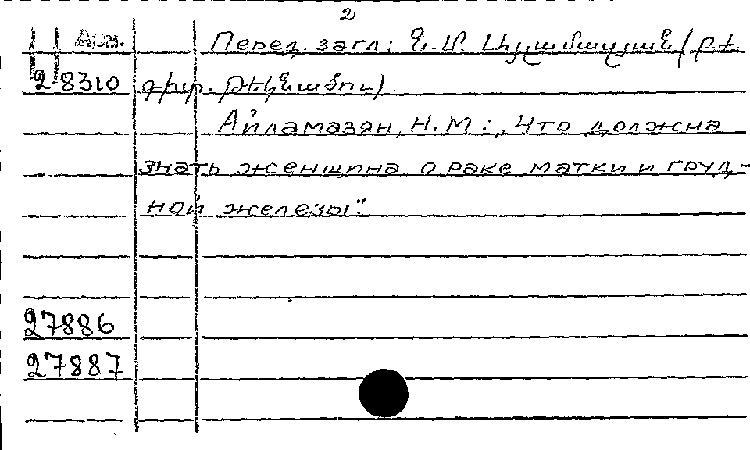 2
Арм. Перед загл: Ն. Մ. Այլամազյան (բժ.
2-8310 գիտ. թեկնածու)
Айламазян, Н. М.: „Что должна
знать женщина о раке матки и груд-
ной железы".
27886
27887